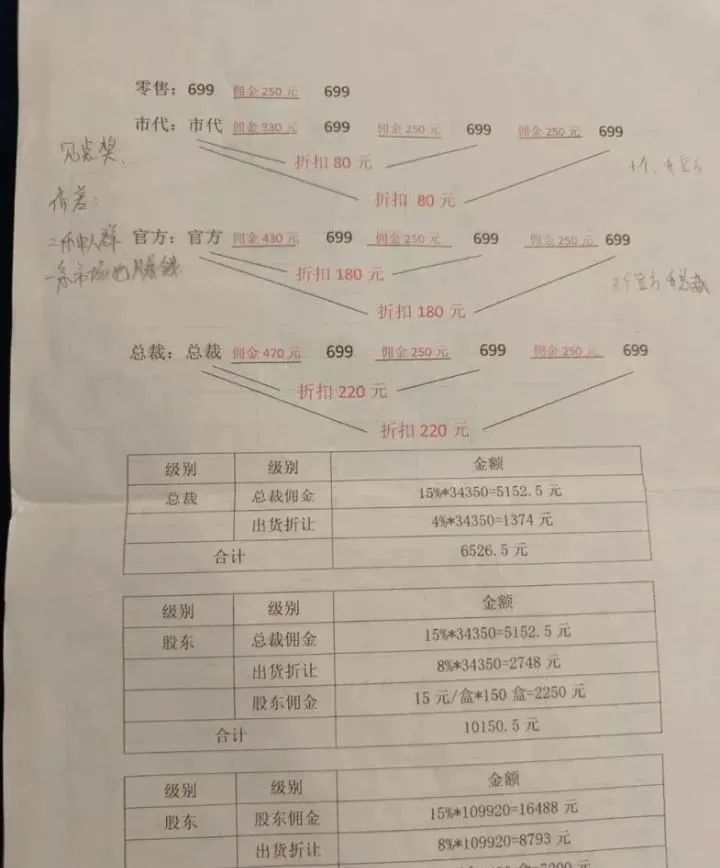 零售：699 佣金 250 元 699
市代：市代 佣金 330 元 699 佣金 250 元 699 佣金 250 元 699
折扣 80 元
见点奖、
折扣 80 元
官方：官方 佣金 430 元 699 佣金 250 元 699 佣金 250 元 699
折扣 180 元
折扣 180 元
总裁：总裁 佣金 470 元 699 佣金 250 元 699 佣金 250 元 699
折扣 220 元
折扣 220 元
级别 级别 金额
总裁 总裁佣金 15%*34350=5152.5 元
出货折让 4%*34350=1374 元
合计 6526.5 元
级别 级别 金额
股东 总裁佣金 15%*34350=5152.5 元
出货折让 8%*34350=2748 元
股东佣金 15 元/盒*150 盒=2250 元
合计 10150.5 元
级别 级别 金额
股东 股东佣金 15%*109920=16488 元
出货折让 8%*109920=8793 元